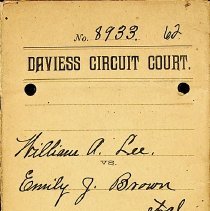 No. 8933. 62
DAVIESS CIRCUIT COURT.
William A. Lee.
VS.
Emily J. Brown
et al